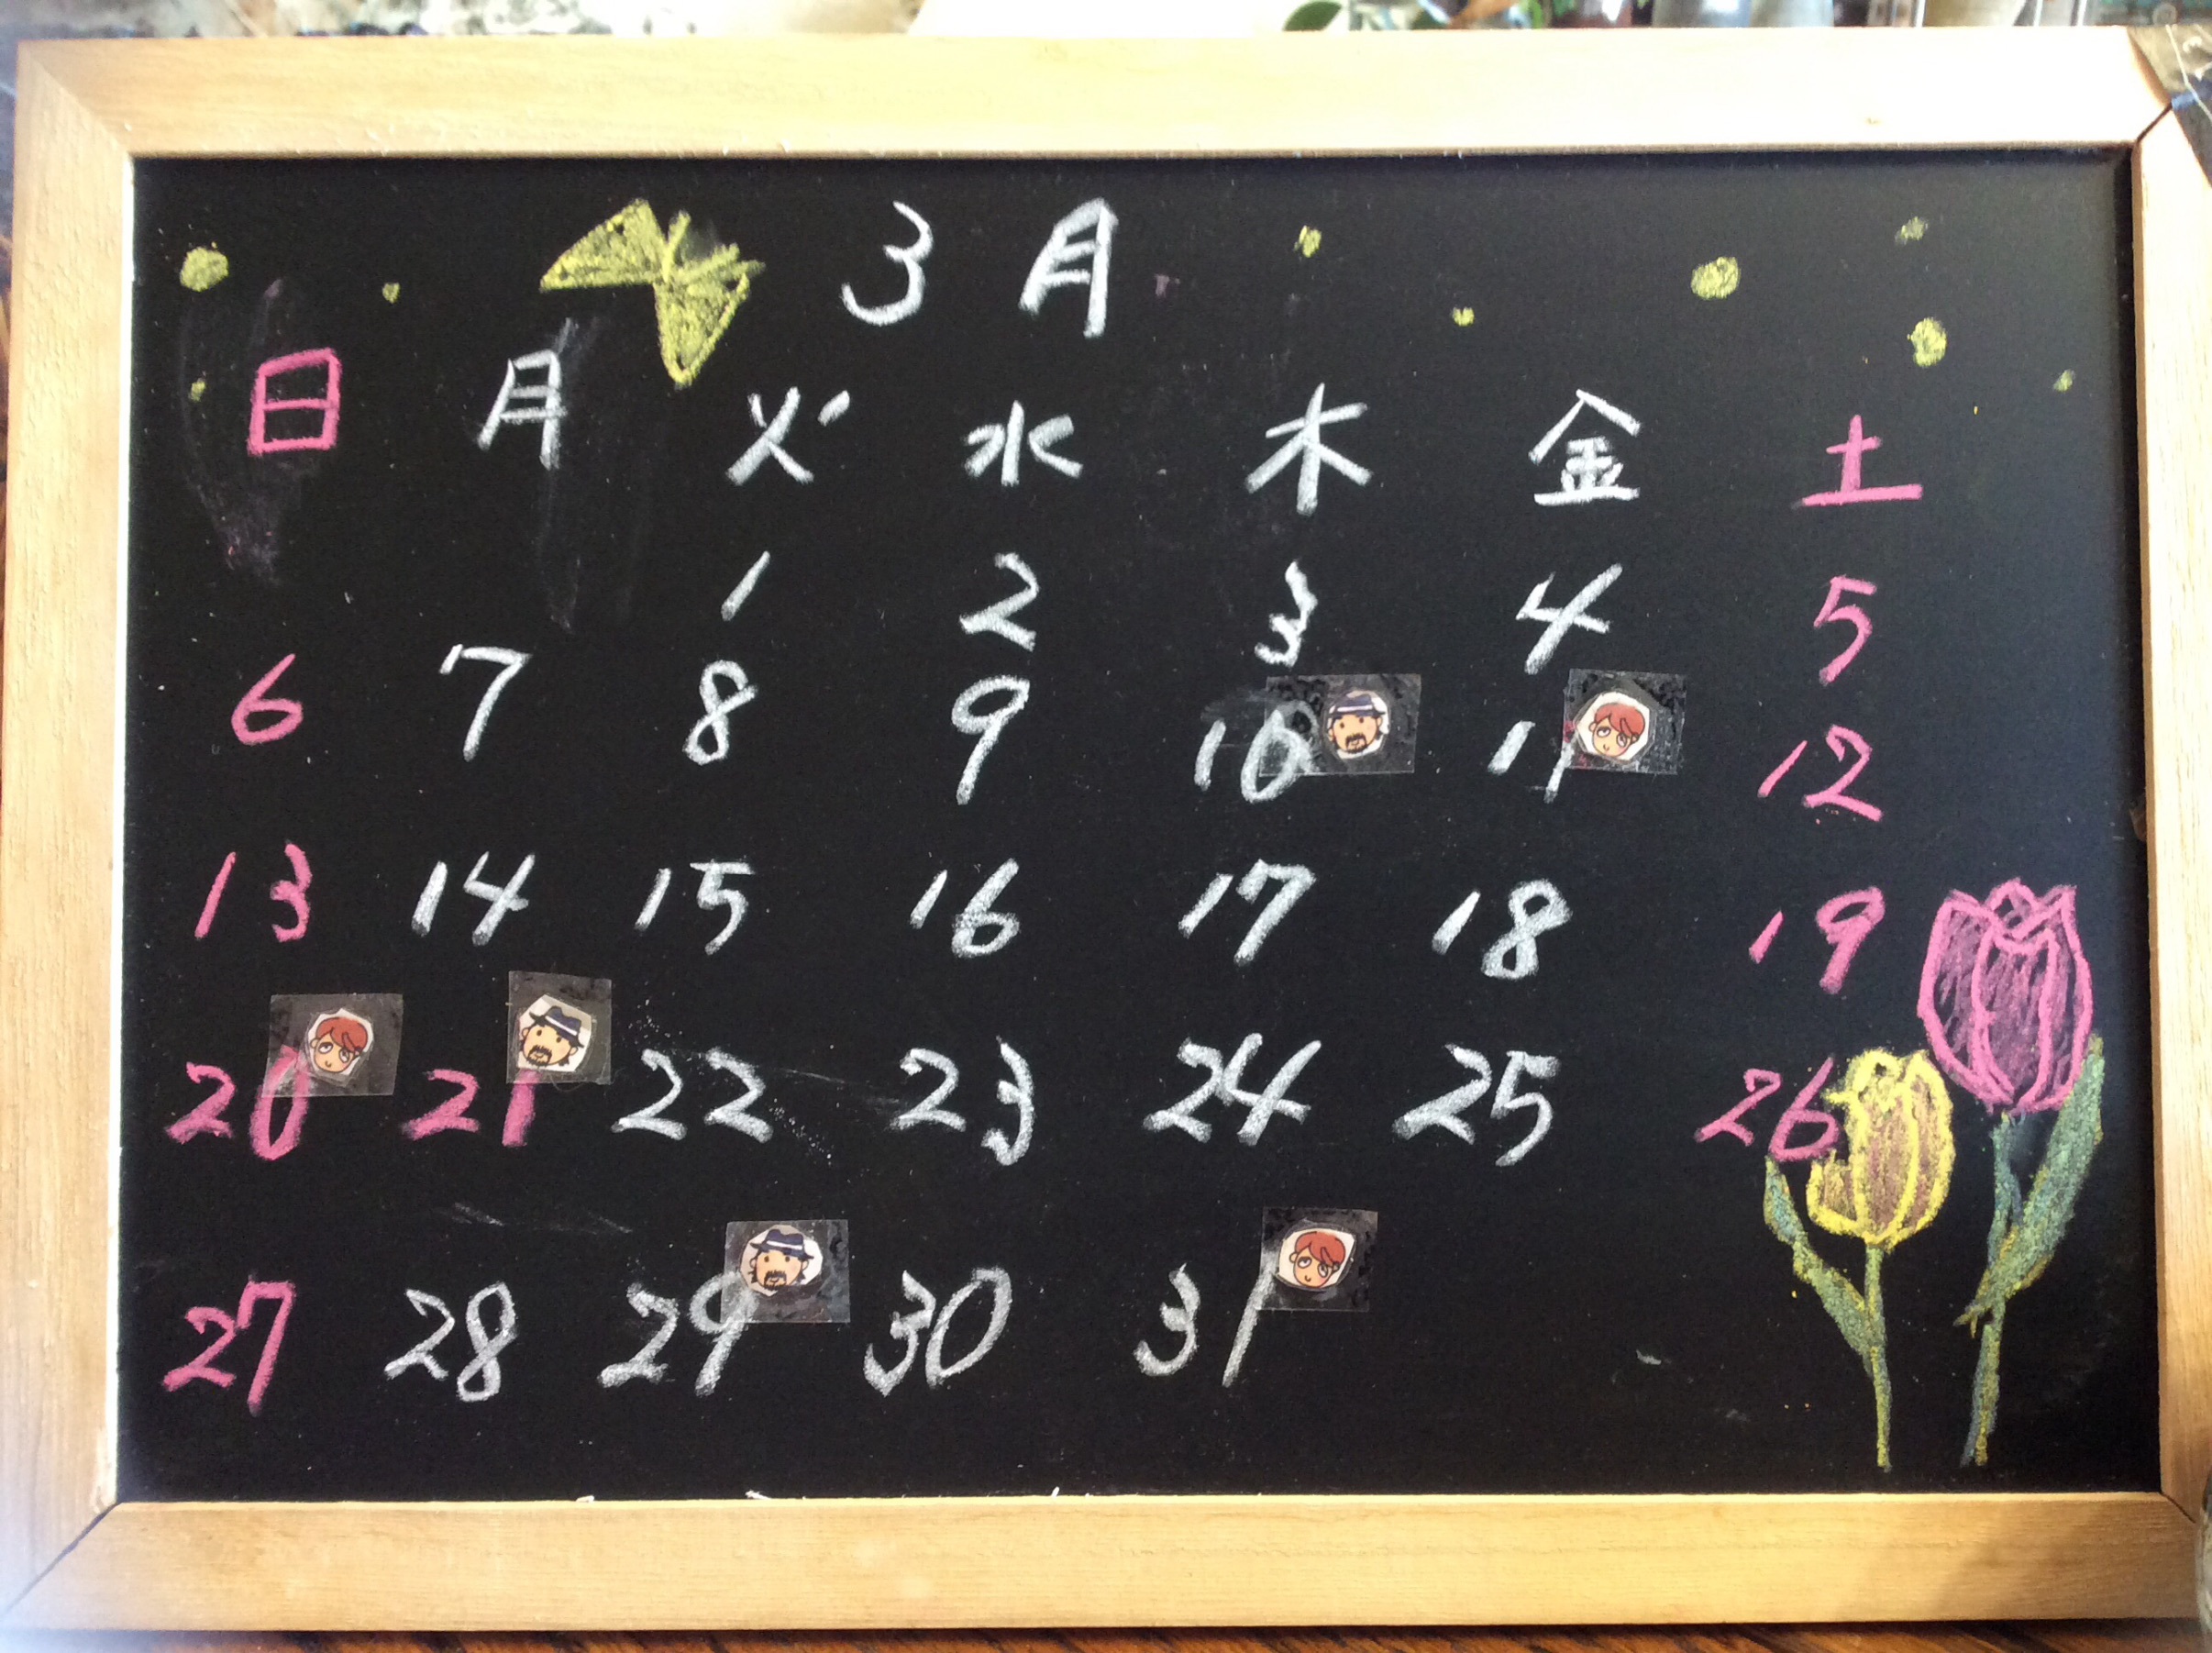 3月
日 月 火 水 木 金 土
1 2 3 4 5
6 7 8 9 10 11 12
13 14 15 16 17 18 19
20 21 22 23 24 25 26
27 28 29 30 31